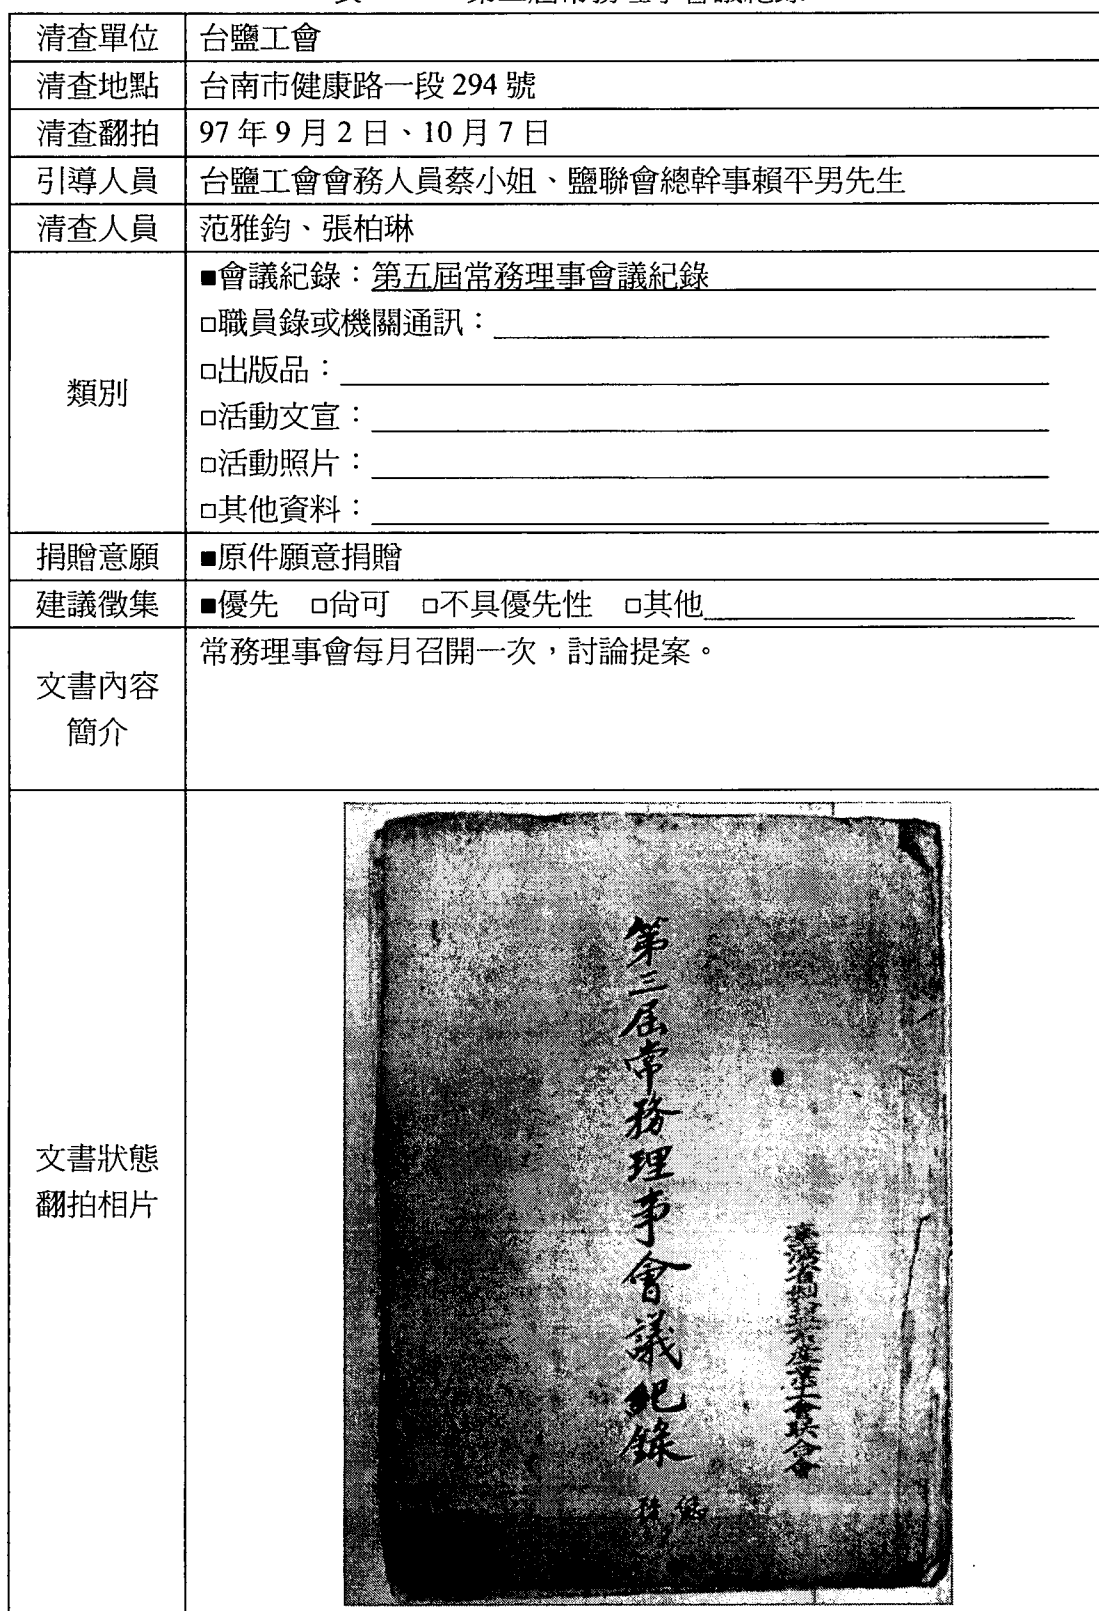 清查單位 台鹽工會
清查地點 台南市健康路一段 294 號
清查翻拍 97 年 9 月 2 日、10 月 7 日
引導人員 台鹽工會會務人員蔡小姐、鹽聯會總幹事賴平男先生
清查人員 范雅鈞、張柏琳
類別
■會議紀錄：第五屆常務理事會議紀錄
□職員錄或機關通訊：
□出版品：
□活動文宣：
□活動照片：
□其他資料：
捐贈意願 ■原件願意捐贈
建議徵集 ■優先 □尚可 □不具優先性 □其他
文書內容
簡介
常務理事會每月召開一次，討論提案。
文書狀態
翻拍相片
第三屆常務理事會議紀錄
產業工會联合會